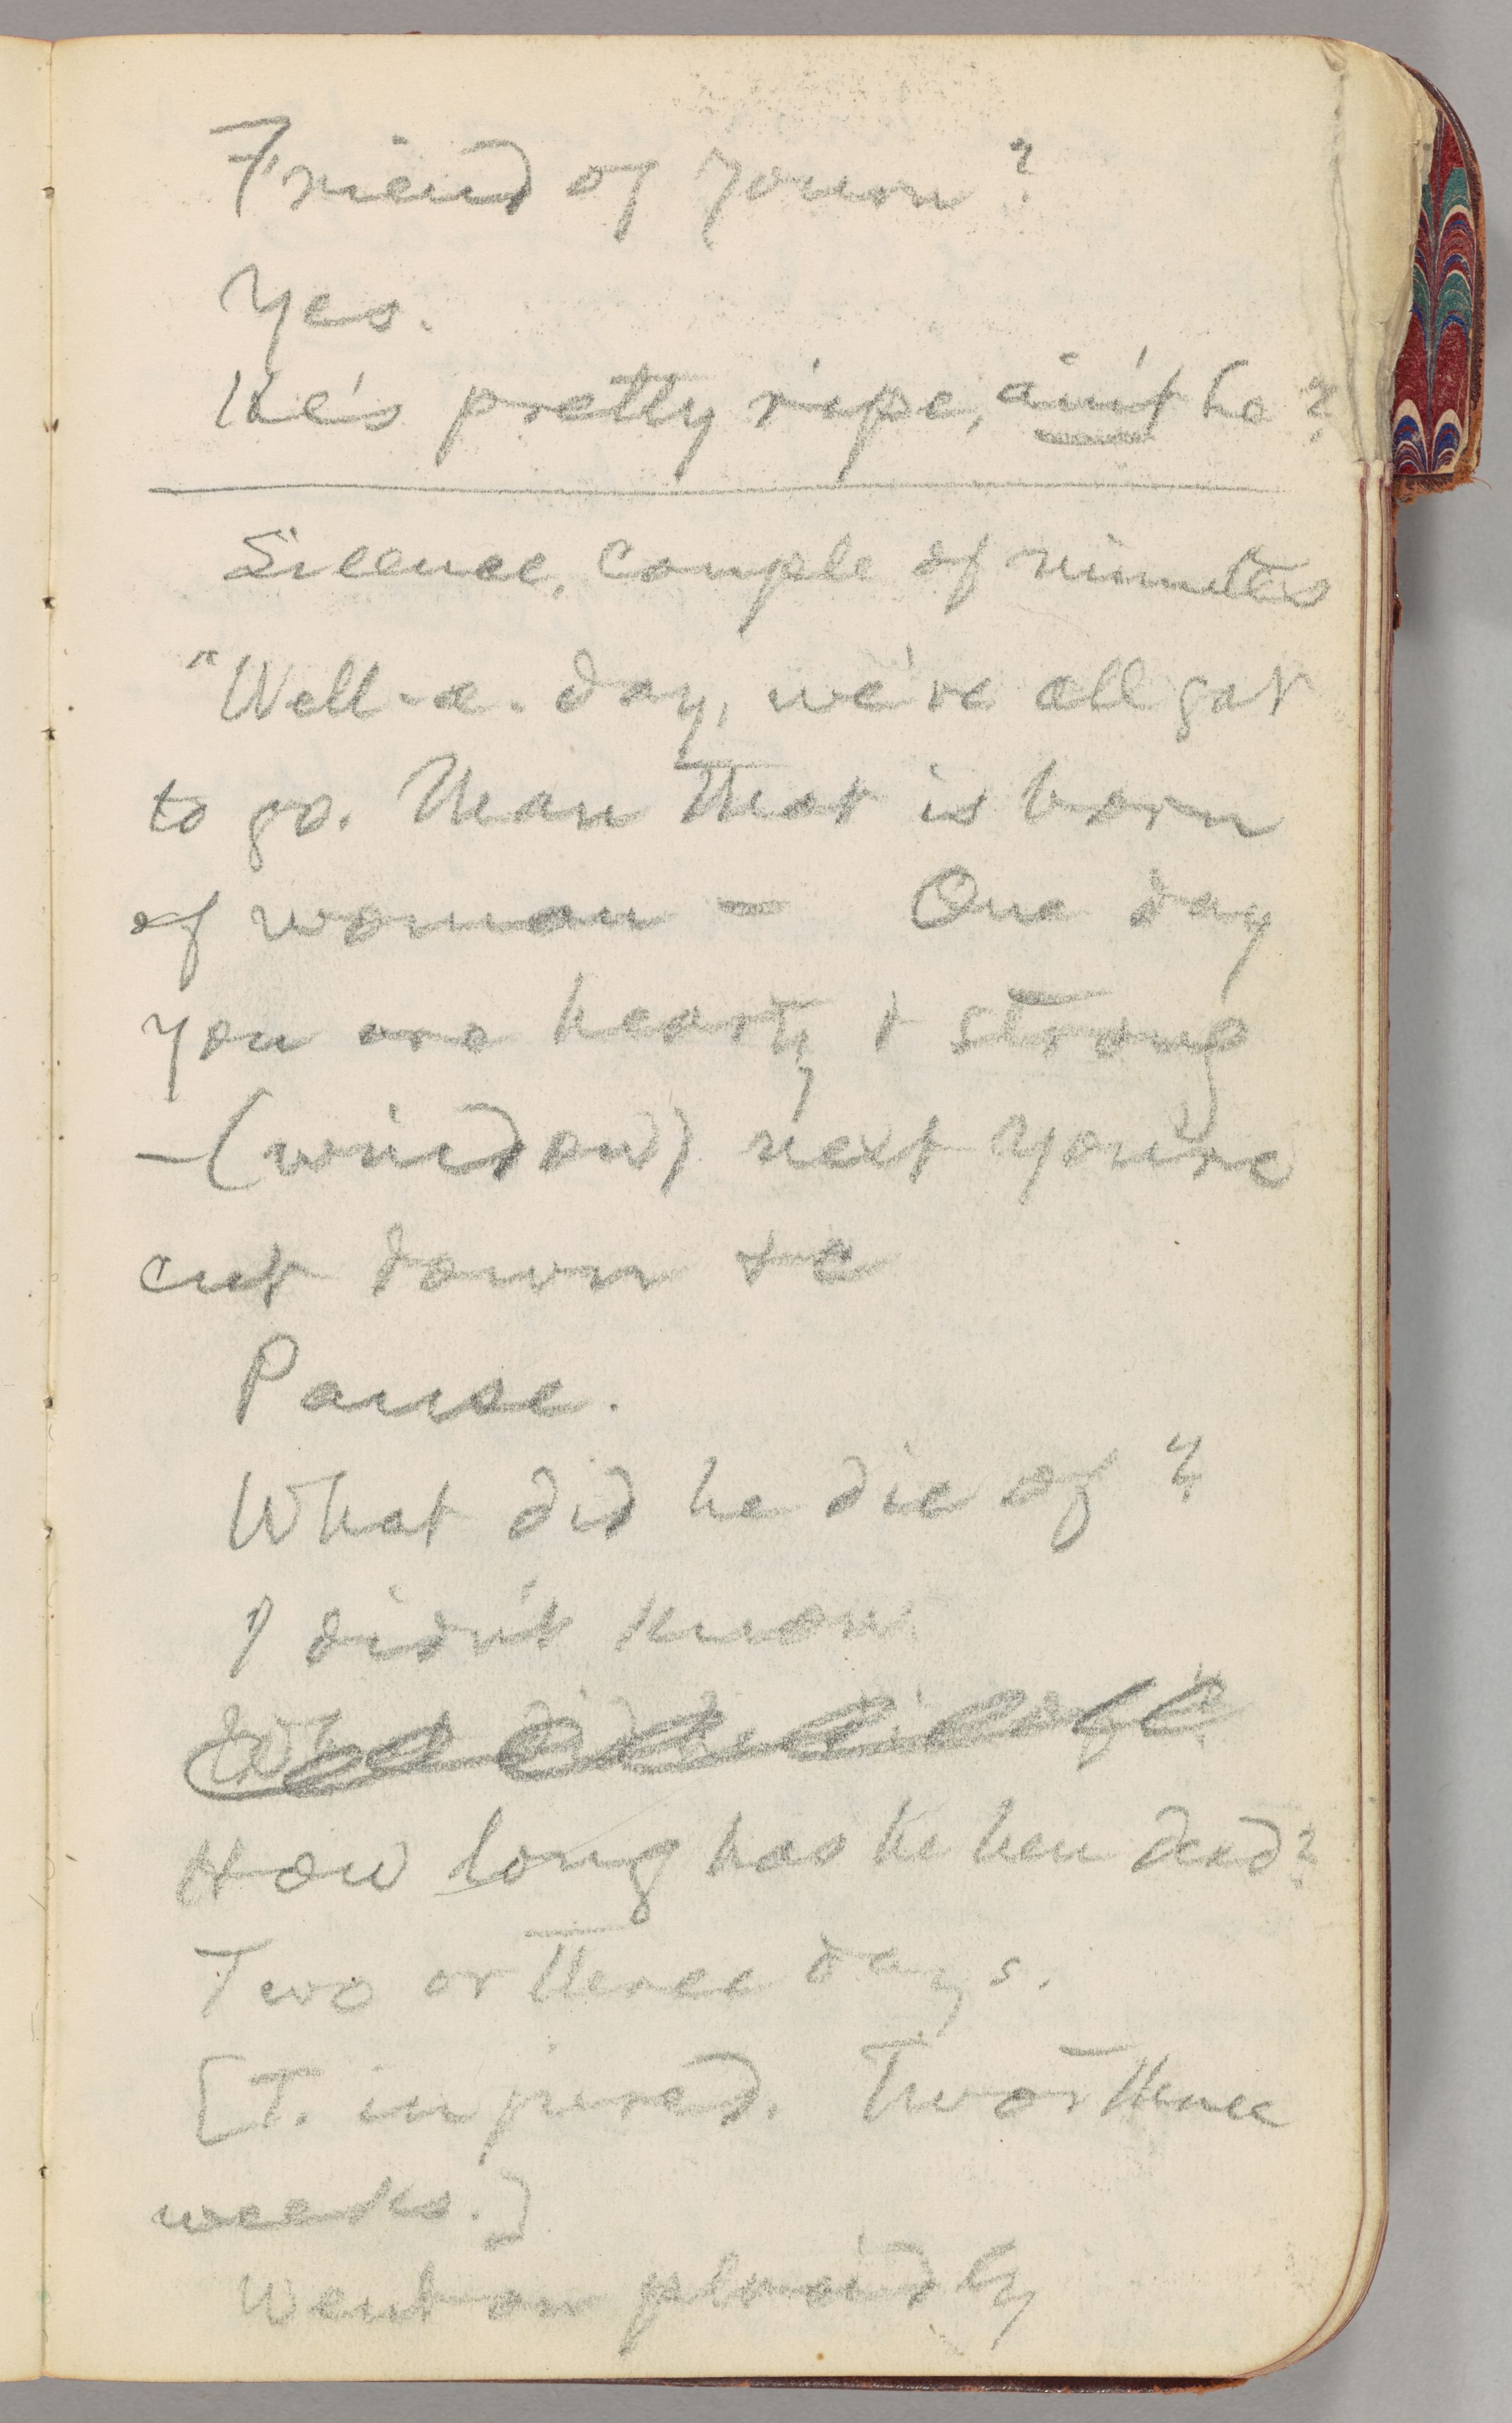 Friend of yourn?
Yes.
He's pretty ripe, ain't he?
Silence, couple of minutes
"Well-a-day, we've all got
to go. Man that is born
of woman — One day
you are hearty & strong
—(window) next you're
cut down &c
Pause.
What did he die of?
I didn't know.
What did he die of?
How long has he been dead?
Two or three days.
[T. injured. Two or three
weeks.]
Went on placidly